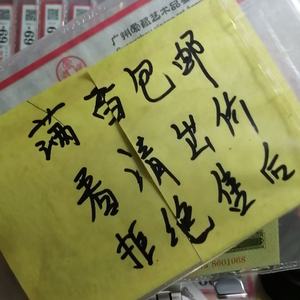 广州尚温艺术品
满百包邮
看清出价
拒绝售后
8601068